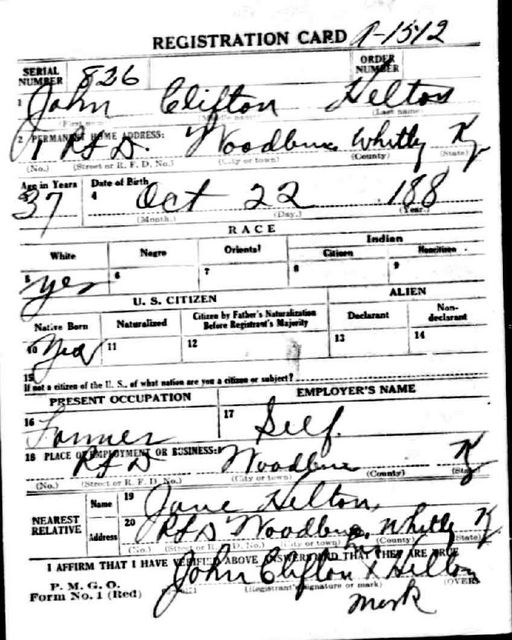 REGISTRATION CARD A-1512
SERIAL NUMBER 826 ORDER NUMBER
1 John Clifton Helton
(First name) (Middle name) (Last name)
2 PERMANENT HOME ADDRESS:
1 RFD. Woodbine Whitly Ky
(No.) (Street or R. F. D. No.) (City or town) (County) (State)
Age in Years Date of Birth
37 4 Oct 22 188
(Month.) (Day.) (Year.)
RACE
White Negro Oriental Indian
Citizen Noncitizen
5 yes 6 7 8 9
U. S. CITIZEN ALIEN
Native Born Naturalized Citizen by Father's Naturalization Before Registrant's Majority Declarant Non-declarant
10 Yes 11 12 13 14
15
If not a citizen of the U. S., of what nation are you a citizen or subject?
PRESENT OCCUPATION EMPLOYER'S NAME
16 Farmer 17 Self.
18 PLACE OF EMPLOYMENT OR BUSINESS:
RFD Woodbine Ky
(No.) (Street or R. F. D. No.) (City or town) (County) (State)
NEAREST RELATIVE Name 19 Jane Helton,
Address 20 RFD Woodbine, Whitly Ky
(No.) (Street or R. F. D. No.) (City or town) (County) (State)
I AFFIRM THAT I HAVE VERIFIED ABOVE ANSWERS AND THAT THEY ARE TRUE
P. M. G. O.
Form No. 1 (Red) John Clifton x Helton
(Registrant's signature or mark) (OVER)
mark